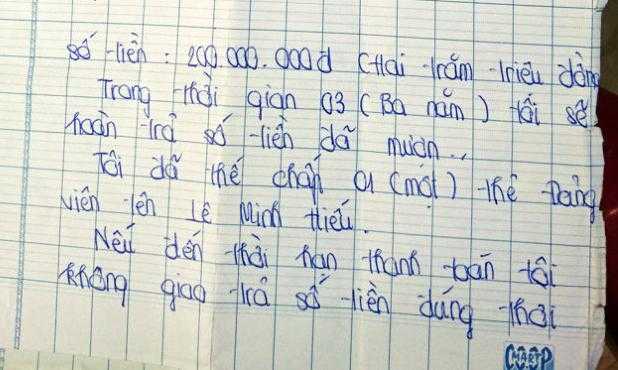 số tiền : 200.000.000đ (Hai trăm triệu đồng
Trong thời gian 03 (Ba năm) tôi sẽ
hoàn trả số tiền đã mượn..
Tôi đã thế chấp 01 (một) thẻ Đảng
viên tên Lê Minh Hiếu.
Nếu đến thời hạn thanh toán tôi
không giao trả số tiền đúng thời